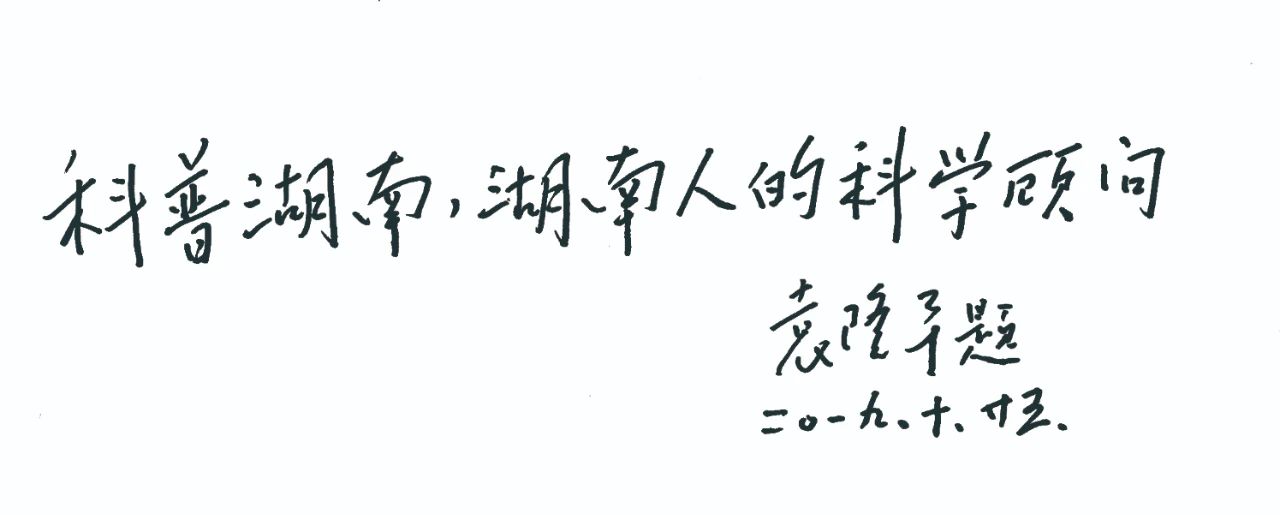 科普湖南,湖南人的科学顾问
袁隆平题
二〇一九、十、廿五.